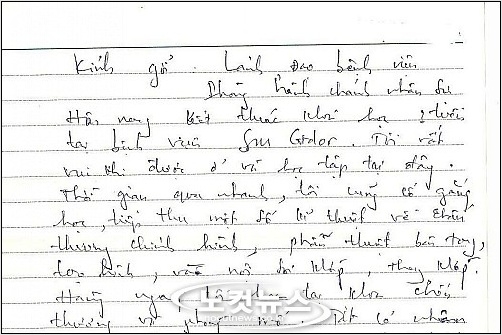 Kính gởi: Lãnh đạo bệnh viện
Phòng hành chánh nhân sự
Hôm nay kết thúc khoá học
tại bệnh viện Tôi rất
vui khi được ở và học tập tại đây.
Thời gian qua nhanh, tôi cũng cố gắng
học, tiếp thu một số kĩ thuật về chấn
thương chỉnh hình, phẫu thuật bàn tay,
tạo hình, nội soi khớp, thay khớp.
Hàng ngày tại khoa chấn
thương và phòng mổ. có nhiều
노컷뉴스